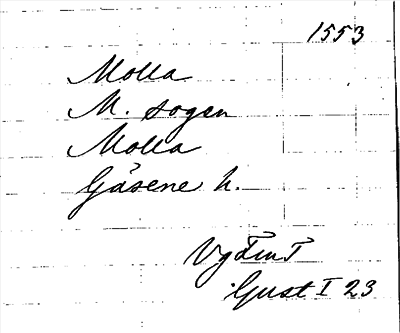 1553
Molla
M. sogen
Molla
Gäsene h.
Gust I 23